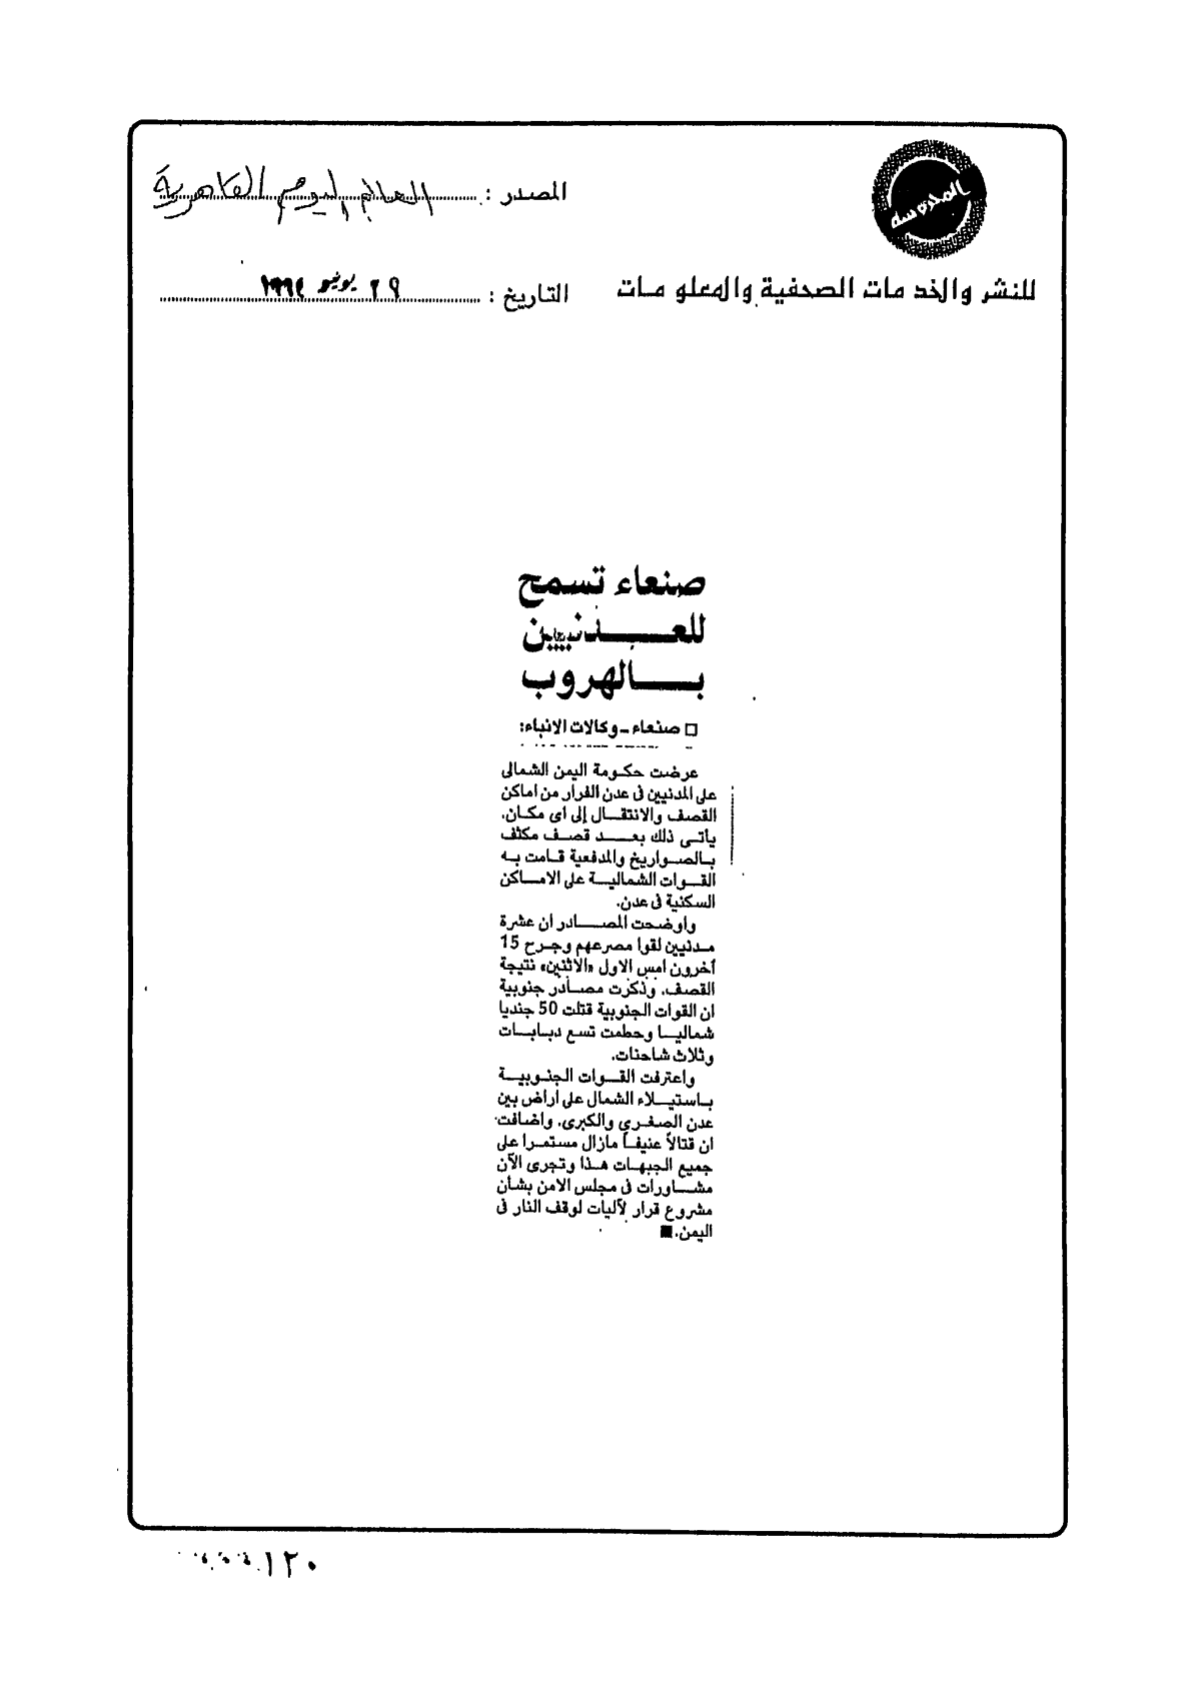 المحروسة
المصدر : العالم اليوم القاهرية
للنشر والخدمات الصحفية والمعلومات
التاريخ : ٢٩ يونيو ١٩٩٤
صنعاء تسمح
للعدنيين
بالهروب
□ صنعاء ــ وكالات الانباء:
عرضت حكومة اليمن الشمالى
على المدنيين فى عدن الفرار من اماكن
القصف والانتقال إلى اى مكان.
يأتى ذلك بعد قصف مكثف
بالصواريخ والمدفعية قامت به
القوات الشمالية على الاماكن
السكنية فى عدن.
واوضحت المصادر ان عشرة
مدنيين لقوا مصرعهم وجرح 15
آخرون امس الاول «الاثنين» نتيجة
القصف. وذكرت مصادر جنوبية
ان القوات الجنوبية قتلت 50 جنديا
شماليا وحطمت تسع دبابات
وثلاث شاحنات.
واعترفت القوات الجنوبية
باستيلاء الشمال على اراض بين
عدن الصغرى والكبرى. واضافت
ان قتالاً عنيفاً مازال مستمرا على
جميع الجبهات هذا وتجرى الآن
مشاورات فى مجلس الامن بشأن
مشروع قرار لآليات لوقف النار فى
اليمن. ■
١٢٠